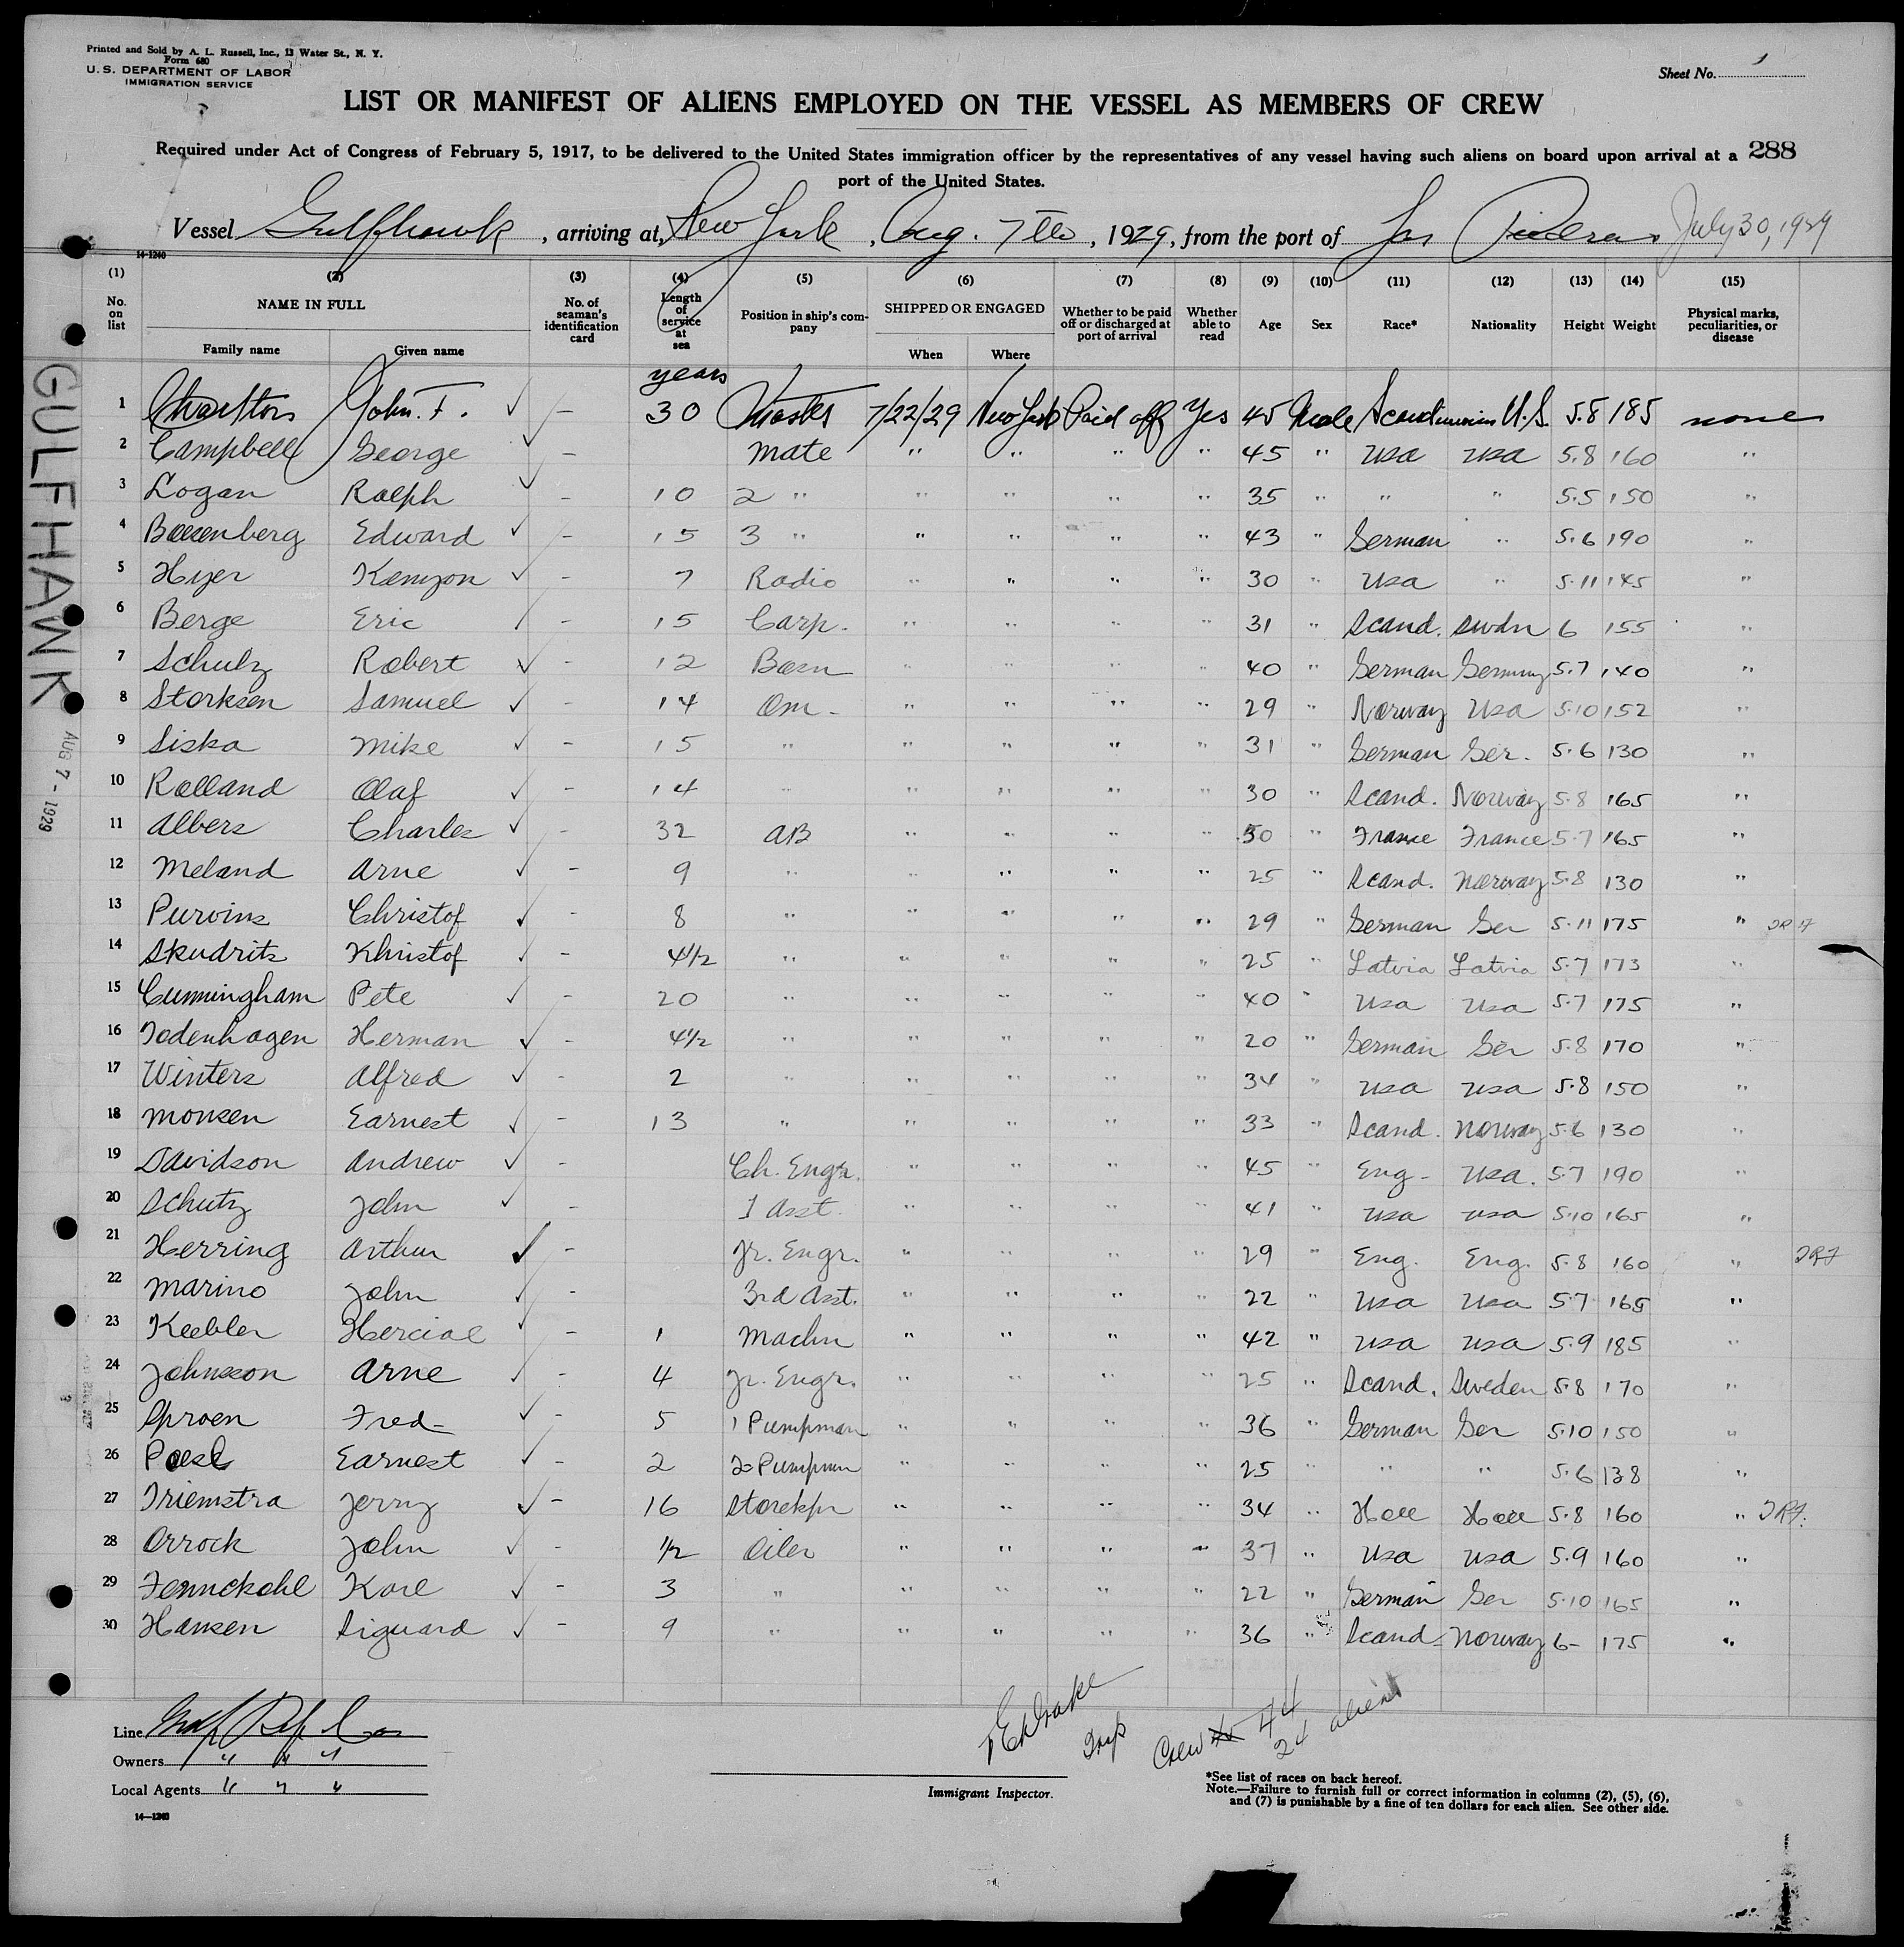 Printed and Sold by A. L. Russell, Inc., 13 Water St., N. Y.
Form 680
U. S. DEPARTMENT OF LABOR
IMMIGRATION SERVICE
Sheet No. 1
LIST OR MANIFEST OF ALIENS EMPLOYED ON THE VESSEL AS MEMBERS OF CREW
Required under Act of Congress of February 5, 1917, to be delivered to the United States immigration officer by the representatives of any vessel having such aliens on board upon arrival at a 288
port of the United States.
Vessel Gulfhawk, arriving at New York, Aug. 7th, 1929, from the port of Las Piedras July 30, 1929
14-1240
(1) (2) (3) (4) (5) (6) (7) (8) (9) (10) (11) (12) (13) (14) (15)
No. on list NAME IN FULL Family name Given name No. of seaman's identification card Length of service at sea Position in ship's company SHIPPED OR ENGAGED When Where Whether to be paid off or discharged at port of arrival Whether able to read Age Sex Race* Nationality Height Weight Physical marks, peculiarities, or disease
years
1 Charlton John. F. ✓ – 30 Master 7/22/29 New York Paid off Yes 45 Male Scandinavian U.S. 5.8 185 none
2 Campbell George ✓ – mate " " " " 45 " usa usa 5.8 160 "
3 Logan Ralph ✓ – 10 2 " " " " " 35 " " " 5.5 150 "
4 Edward ✓ – 15 3 " " " " " 43 " German " 5.6 190 "
5 Hyer Kenyon ✓ – 7 Radio " " " " 30 " Usa " 5.11 145 "
6 Berge Eric ✓ – 15 Carp. " " " " 31 " Scand. Swdn 6 155 "
7 Schulz Robert ✓ – 12 Bosn " " " " 40 " German Germany 5.7 140 "
8 Storksen Samuel ✓ – 14 Qm - " " " " 29 " Norway Usa 5.10 152 "
9 Siska Mike ✓ – 15 " " " " " 31 " German Ger. 5.6 130 "
10 Rolland Olaf ✓ – 14 " " " " " 30 " Scand. Norway 5.8 165 "
11 Albers Charles ✓ – 32 AB " " " " 50 " France France 5.7 165 "
12 Meland Arne ✓ – 9 " " " " " 25 " Scand. Norway 5.8 130 "
13 Purvins Christof ✓ – 8 " " " " " 29 " German Ger 5.11 175 "
14 Skudrits Khristof ✓ – 4½ " " " " " 25 " Latvia Latvia 5.7 173 "
15 Cunningham Pete ✓ – 20 " " " " " 40 " Usa Usa 5.7 175 "
16 Todenhagen Herman ✓ – 4½ " " " " " 20 " German Ger 5.8 170 "
17 Winters Alfred ✓ – 2 " " " " " 34 " usa usa 5.8 150 "
18 Monsen Earnest ✓ – 13 " " " " " 33 " Scand. Norway 5.6 130 "
19 Davidson Andrew ✓ – Ch. Engr. " " " " 45 " Eng - Usa. 5.7 190 "
20 Schutz John ✓ – 1 Asst. " " " " 41 " usa usa 5.10 165 "
21 Herring Arthur ✓ – Jr. Engr. " " " " 29 " Eng. Eng. 5.8 160 "
22 Marino John ✓ – 3rd Asst. " " " " 22 " Usa Usa 5.7 165 "
23 Keebler ✓ – 1 Machn " " " " 42 " usa usa 5.9 185 "
24 Johnsson Arne ✓ – 4 Jr. Engr. " " " " 25 " Scand. Sweden 5.8 170 "
25 Sproen Fred ✓ – 5 1 Pumpman " " " " 36 " German Ger 5.10 150 "
26 Earnest ✓ – 2 2 Pumpmn " " " " 25 " " " 5.6 138 "
27 Triemstra Jerry ✓ – 16 Storekpr " " " " 34 " Holl Holl 5.8 160 "
28 Orrock John ✓ – ½ Oiler " " " " 37 " Usa usa 5.9 160 "
29 Karl ✓ – 3 " " " " " 22 " German Ger 5.10 165 "
30 Hansen Siguard ✓ – 9 " " " " " 36 " Scand Norway 6- 175 "
GULFHAWK
AUG 7 - 1929
Line Gulf Ref Co
Owners " " "
Local Agents " " "
14—1240
Immigrant Inspector.
Crew 44
24 aliens
*See list of races on back hereof.
Note.—Failure to furnish full or correct information in columns (2), (5), (6),
and (7) is punishable by a fine of ten dollars for each alien. See other side.